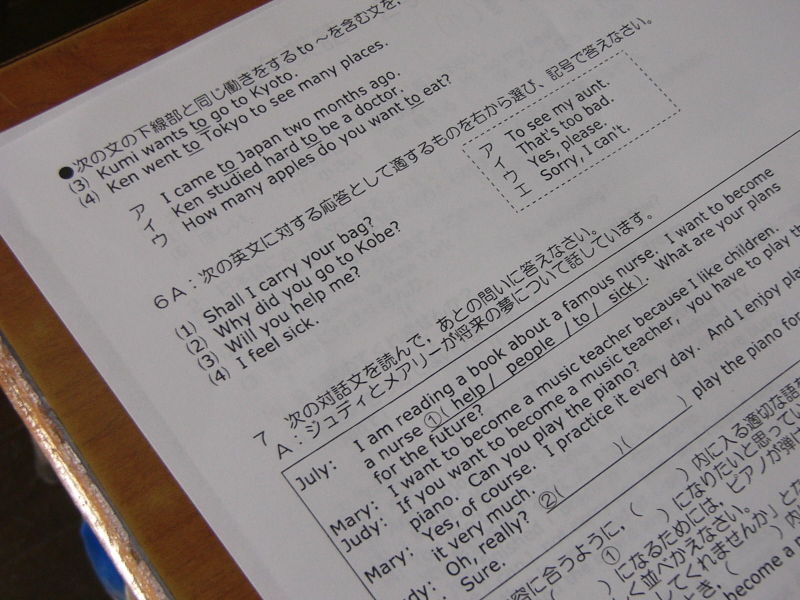 ●次の文の下線部と同じ働きをする to ～を含む文を,
(3) Kumi wants to go to Kyoto.
(4) Ken went to Tokyo to see many places.
ア I came to Japan two months ago.
イ Ken studied hard to be a doctor.
ウ How many apples do you want to eat?
6A：次の英文に対する応答として適するものを右から選び、記号で答えなさい。
(1) Shall I carry your bag?
(2) Why did you go to Kobe?
(3) Will you help me?
(4) I feel sick.
ア To see my aunt.
イ That's too bad.
ウ Yes, please.
エ Sorry, I can't.
7 次の対話文を読んで，あとの問いに答えなさい。
A：ジュディとメアリーが将来の夢について話しています。
July: I am reading a book about a famous nurse. I want to become
a nurse ①( help / people / to / sick ). What are your plans
for the future?
Mary: I want to become a music teacher because I like children.
Judy: If you want to become a music teacher, you have to play th
piano. Can you play the piano?
Mary: Yes, of course. I practice it every day. And I enjoy pla
it very much.
dy: Oh, really? ②( )( ) play the piano for
Sure.
容に合うように，( )内に入る適切な語を
①( )になりたいと思ってい
( )になるためには、ピアノが弾
く並べかえなさい。
してくれませんか」とな
とき，( )内
become a m